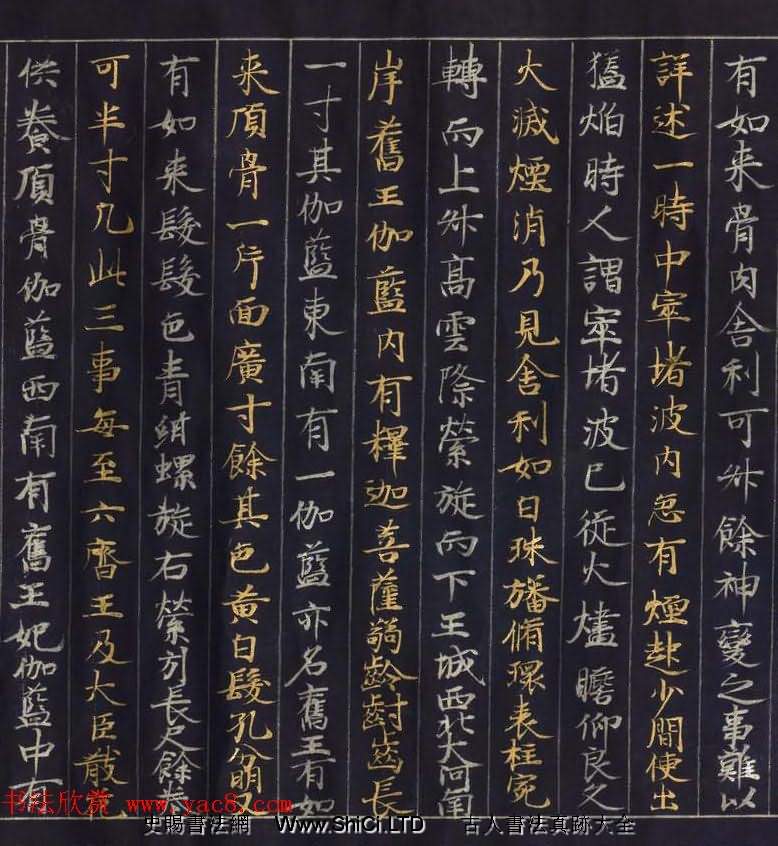 有如来骨肉舍利可升餘神變之事難以
詳述一時中窣堵波内忽有煙起少間便出
猛焰時人謂窣堵波已從火燼瞻仰良久
火滅煙消乃見舍利如白珠旛循環表柱宛
轉而上升高雲際縈旋而下王城西北大河南
岸舊王伽藍内有釋迦菩薩弱齡齔齒長
一寸其伽藍東南有一伽藍亦名舊王有如
来頂骨一片面廣寸餘其色黄白髮孔分明又
有如来髮髮色青紺螺旋右縈引長尺餘卷
可半寸凡此三事每至六齋王及大臣散花
供養頂骨伽藍西南有舊王妃伽藍中有
书法欣赏 www.yac8.com
史賜書法網 Www.ShiCi.LTD 古人書法真跡大全